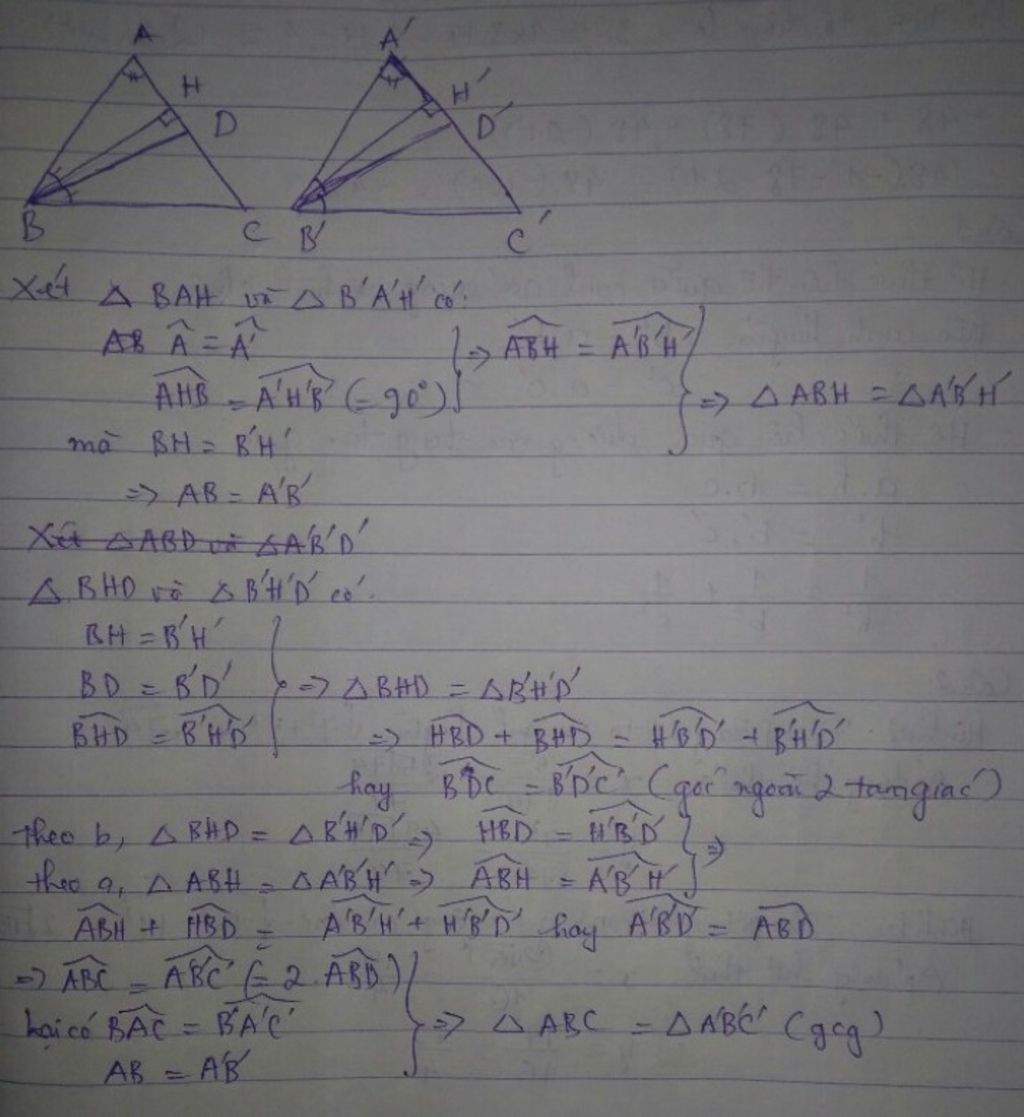 A A'
H H'
D D'
B C B' C'
Xét △ BAH và △ B'A'H' có:
AB Â = Â'
AHB = A'H'B' (= 90°) => ABH = A'B'H'
mà BH = B'H' => △ ABH = △A'B'H'
=> AB = A'B'
Xét △ABD và △A'B'D'
△ BHD và △ B'H'D' có:
BH = B'H'
BD = B'D' => △BHD = △B'H'D'
BHD = B'H'D' => HBD + BHD = H'B'D' + B'H'D'
hay BDC = B'D'C' (góc ngoài 2 tam giác)
theo b, △ BHD = △B'H'D' => HBD = H'B'D' =>
theo a, △ ABH = △A'B'H' => ABH = A'B'H'
ABH + HBD = A'B'H' + H'B'D' hay A'B'D' = ABD
=> ABC = A'B'C' (= 2. ABD)
lại có BAC = B'A'C' => △ ABC = △A'B'C' (gcg)
AB = A'B'